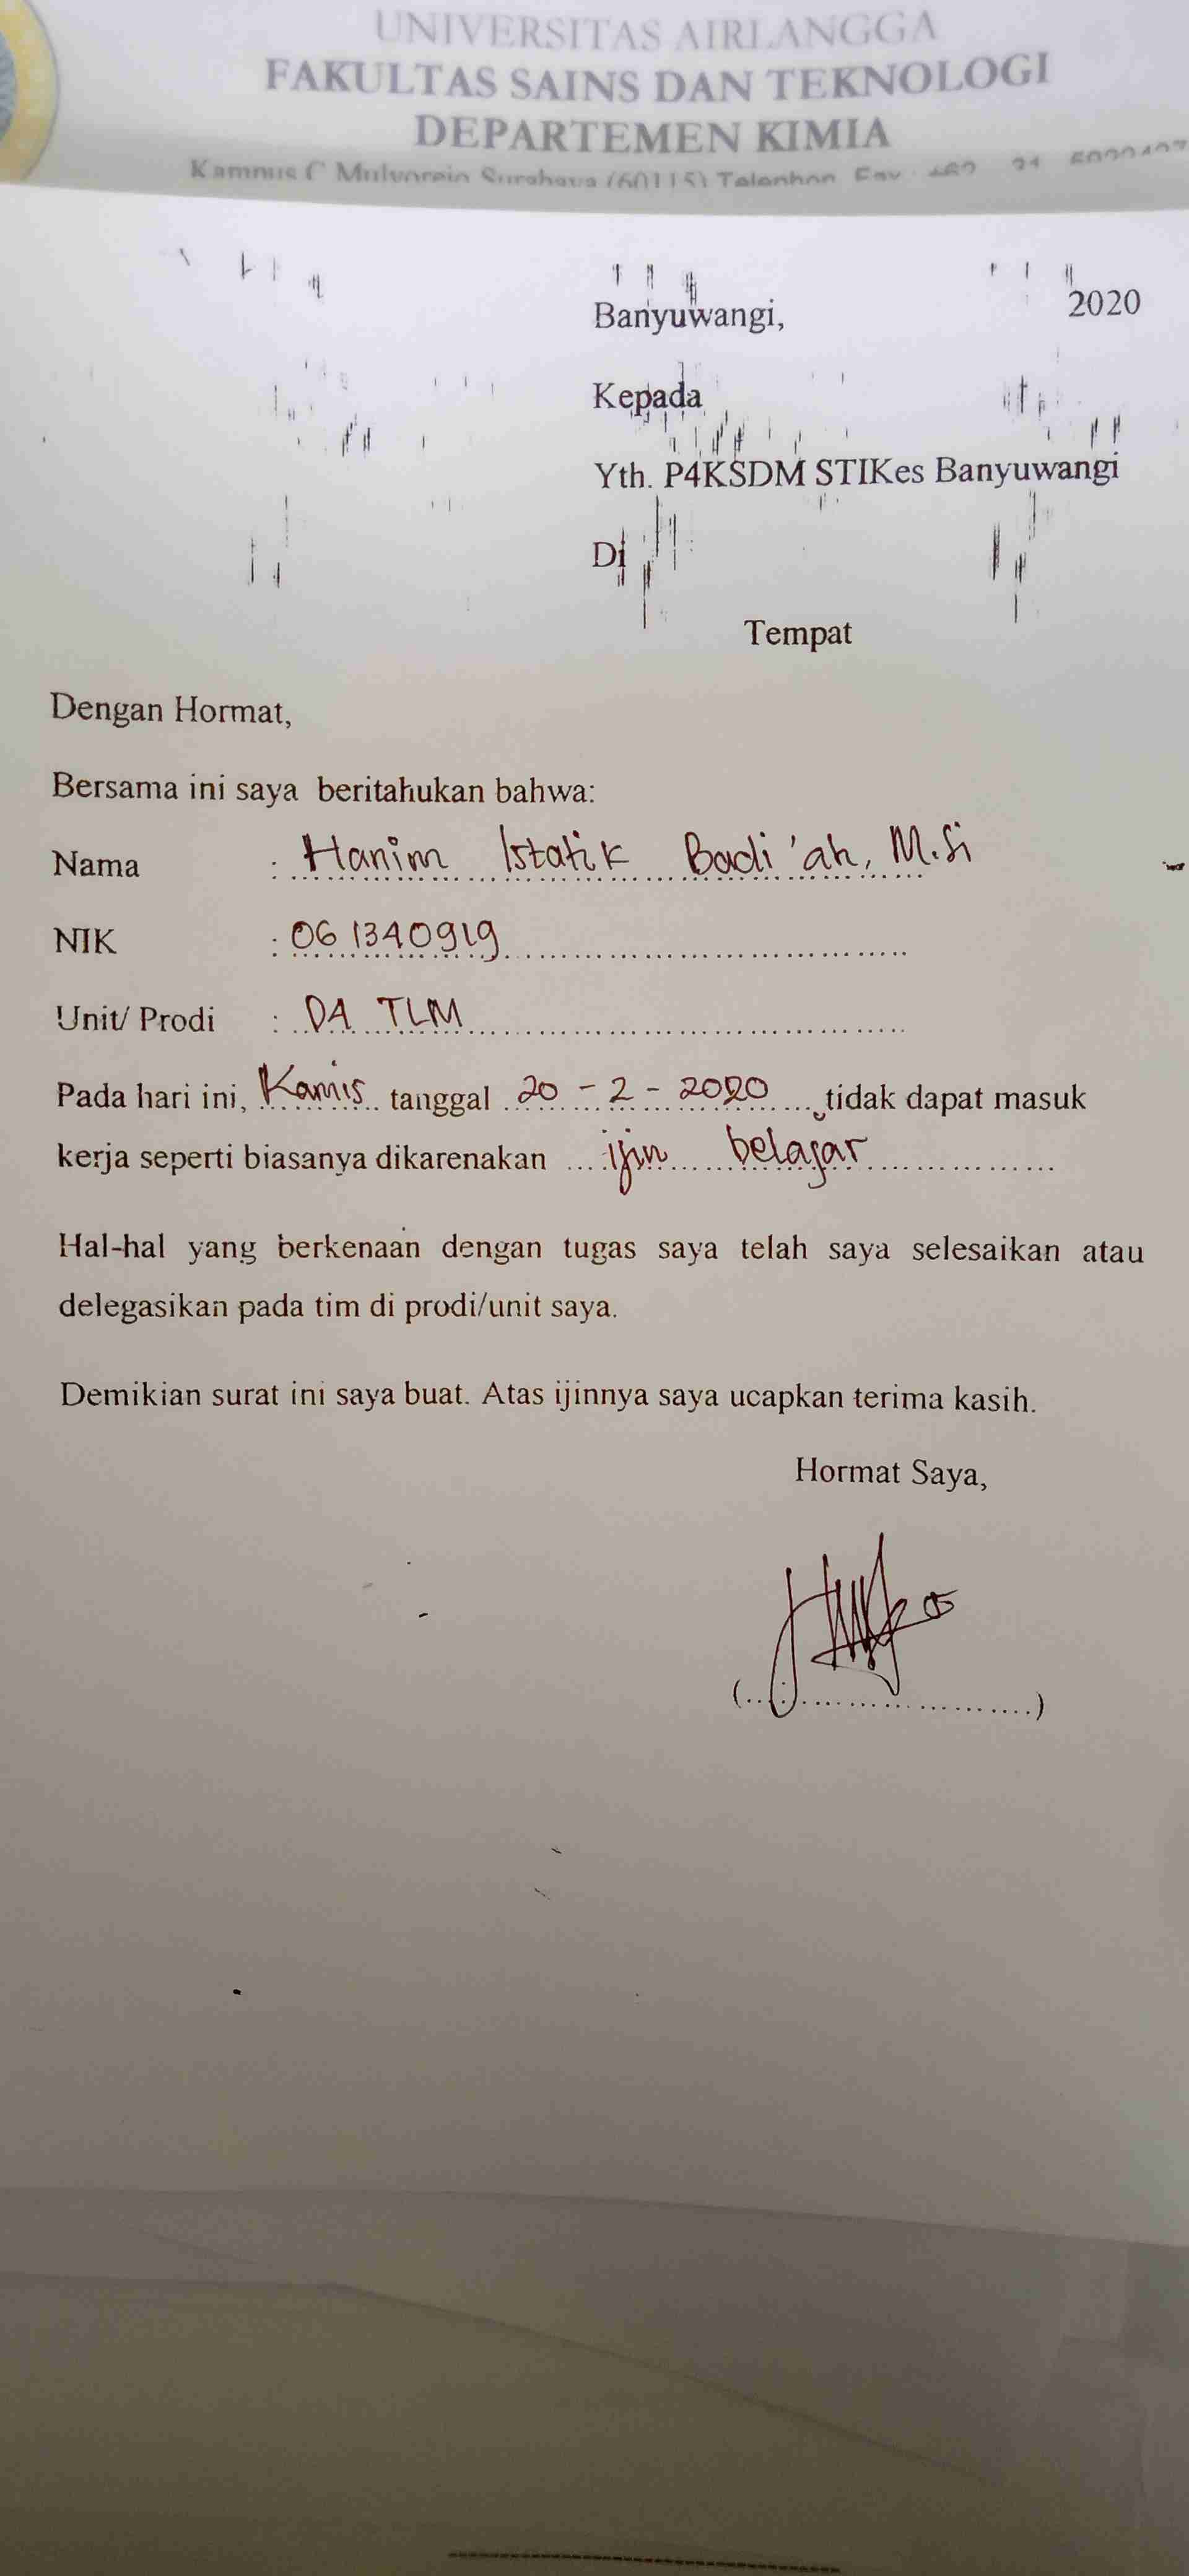 UNIVERSITAS AIRLANGGA
FAKULTAS SAINS DAN TEKNOLOGI
DEPARTEMEN KIMIA
Kampus C Mulyorejo Surabaya (60115) Telephon. Fax
Banyuwangi, 2020
Kepada
Yth. P4KSDM STIKes Banyuwangi
Di
Tempat
Dengan Hormat,
Bersama ini saya beritahukan bahwa:
Nama : Hanim Istatik Badi'ah, M.Si
NIK : 061340919
Unit/ Prodi : DA TLM
Pada hari ini, Kamis tanggal 20 - 2 - 2020 tidak dapat masuk
kerja seperti biasanya dikarenakan ijin belajar
Hal-hal yang berkenaan dengan tugas saya telah saya selesaikan atau
delegasikan pada tim di prodi/unit saya.
Demikian surat ini saya buat. Atas ijinnya saya ucapkan terima kasih.
Hormat Saya,